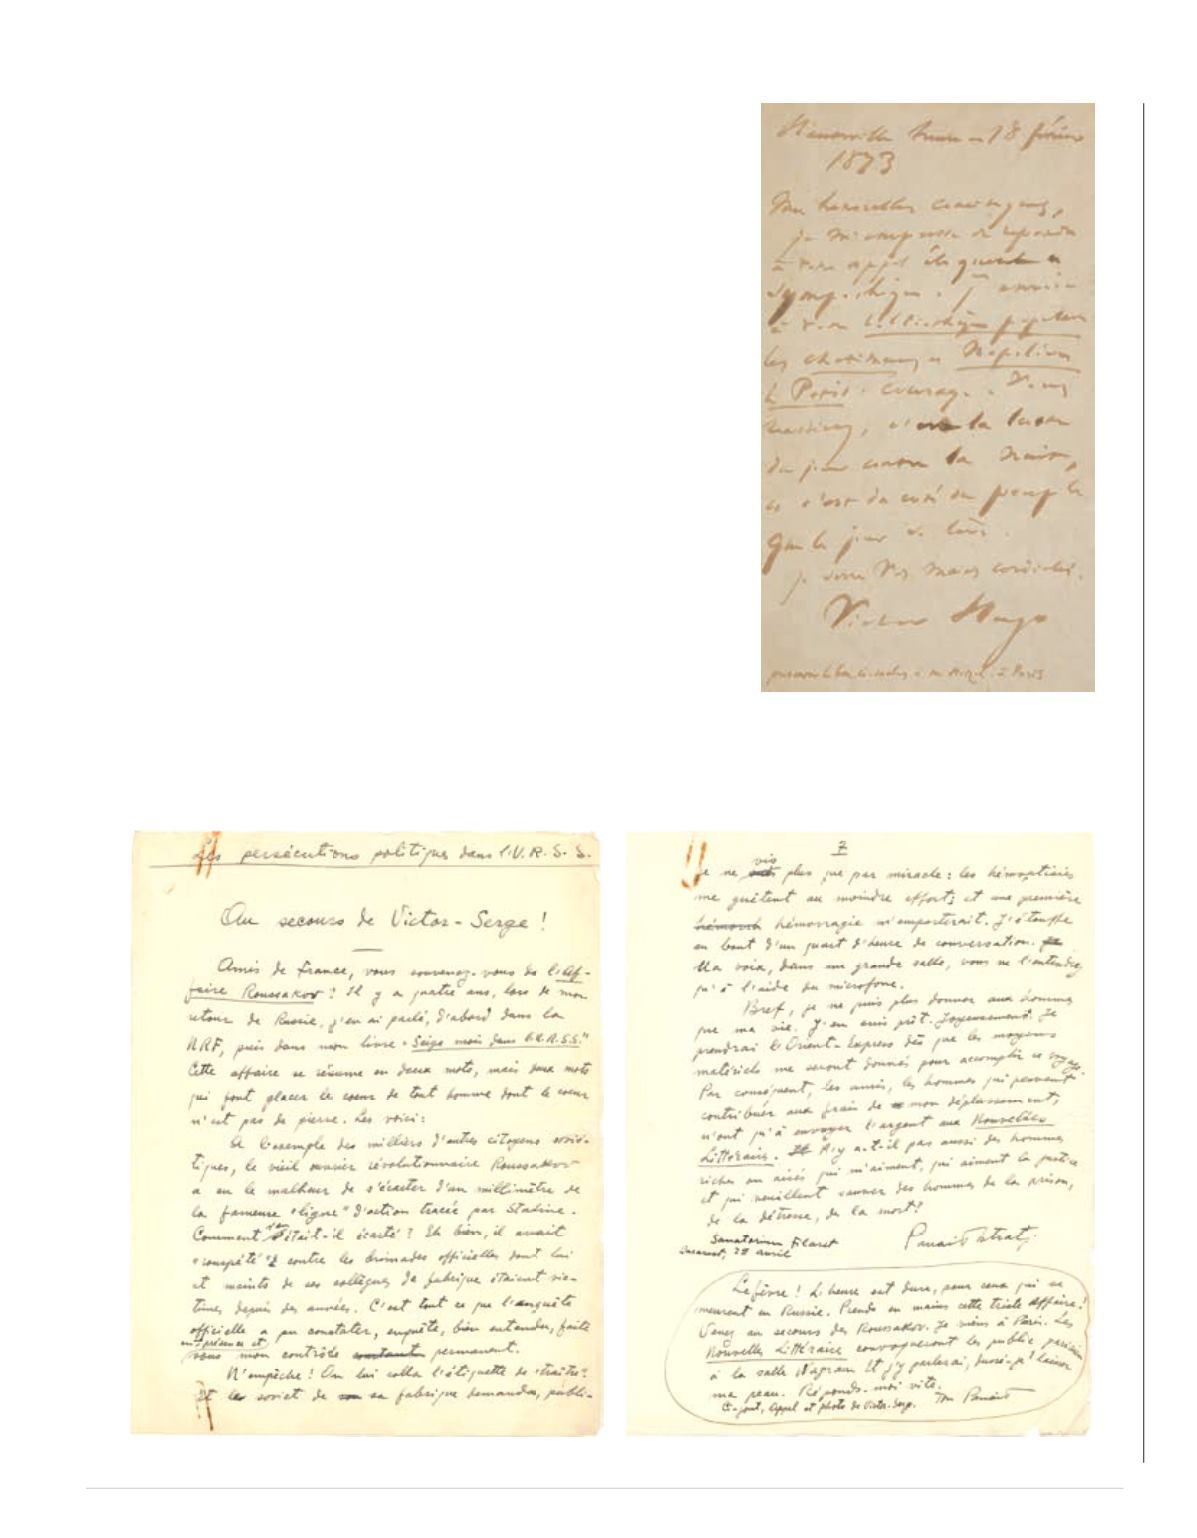 Hauteville house – 18 février
1873
Mes honorables concitoyens,
je m'empresse de répondre
à votre appel éloquent et
sympathique. J'envoie
à votre bibliothèque populaire
les châtiments et Napoléon
le Petit. Courage. Vous
c'est la lutte
du jour contre la nuit,
et c'est du côté du peuple
que le jour se lève.
je serre vos mains cordiales.
Victor Hugo
à Paris
Les persécutions politiques dans l'U.R.S.S.
Au secours de Victor-Serge !
Amis de France, vous souvenez-vous de l'Af-
faire Roussakov ? Il y a quatre ans, lors de mon
retour de Russie, j'en ai parlé, d'abord dans la
NRF, puis dans mon livre "Seize mois dans l'U.R.S.S."
Cette affaire se résume en deux mots, mais deux mots
qui font glacer le coeur de tout homme dont le coeur
n'est pas de pierre. Les voici :
A l'exemple des milliers d'autres citoyens sovié-
tiques, le vieil ouvrier révolutionnaire Roussakov
a eu le malheur de s'écarter d'un millimètre de
la fameuse "ligne" d'action tracée par Staline.
Comment s'en était-il écarté ? Eh bien, il avait
"rouspété" contre les brimades officielles dont lui
et maints de ses collègues de fabrique étaient vic-
times depuis des années. C'est tout ce que l'enquête
officielle a pu constater, enquête, bien entendu, faite
en présence et
sous mon contrôle constant permanent.
N'empêche ! On lui colla l'étiquette de "traître".
Et le soviet de sa fabrique demanda, publi-
7
Je ne vis plus que par miracle : les hémoptisies
me guêtent au moindre effort ; et une première
hémorragie m'emporterait. J'étouffe
en bout d'un quart d'heure de conversation.
Ma voix, dans une grande salle, vous ne l'entendez
qu'à l'aide du microfone.
Bref, je ne puis plus donner aux hommes
que ma vie. J'en suis prêt. Joyeusement. Je
prendrai l'Orient-Express dès que les moyens
matériels me seront donnés pour accomplir ce voyage.
Par conséquent, les amis, les hommes qui peuvent
contribuer aux frais de mon déplacement,
n'ont qu'à envoyer l'argent aux Nouvelles
Littéraires. N'y a-t-il pas aussi des hommes
riches ou aisés qui m'aiment, qui aiment la justice
et qui veuillent sauver des hommes de la prison,
de la détresse, de la mort ?
Sanatorium Filaret
Bucarest, 27 avril
Panait Istrati
Lefèvre ! L'heure est dure, pour ceux qui se
meurent en Russie. Prends en mains cette triste affaire !
Venez au secours des Roussakov. Je viens à Paris. Les
Nouvelles Littéraires convoqueront le public parisien
à la salle Wagram et j'y parlerai, dussé-je laisser
ma peau. Réponds-moi vite.
Ton Panait
Ci-joint, Appel et photo de Victor-Serge.